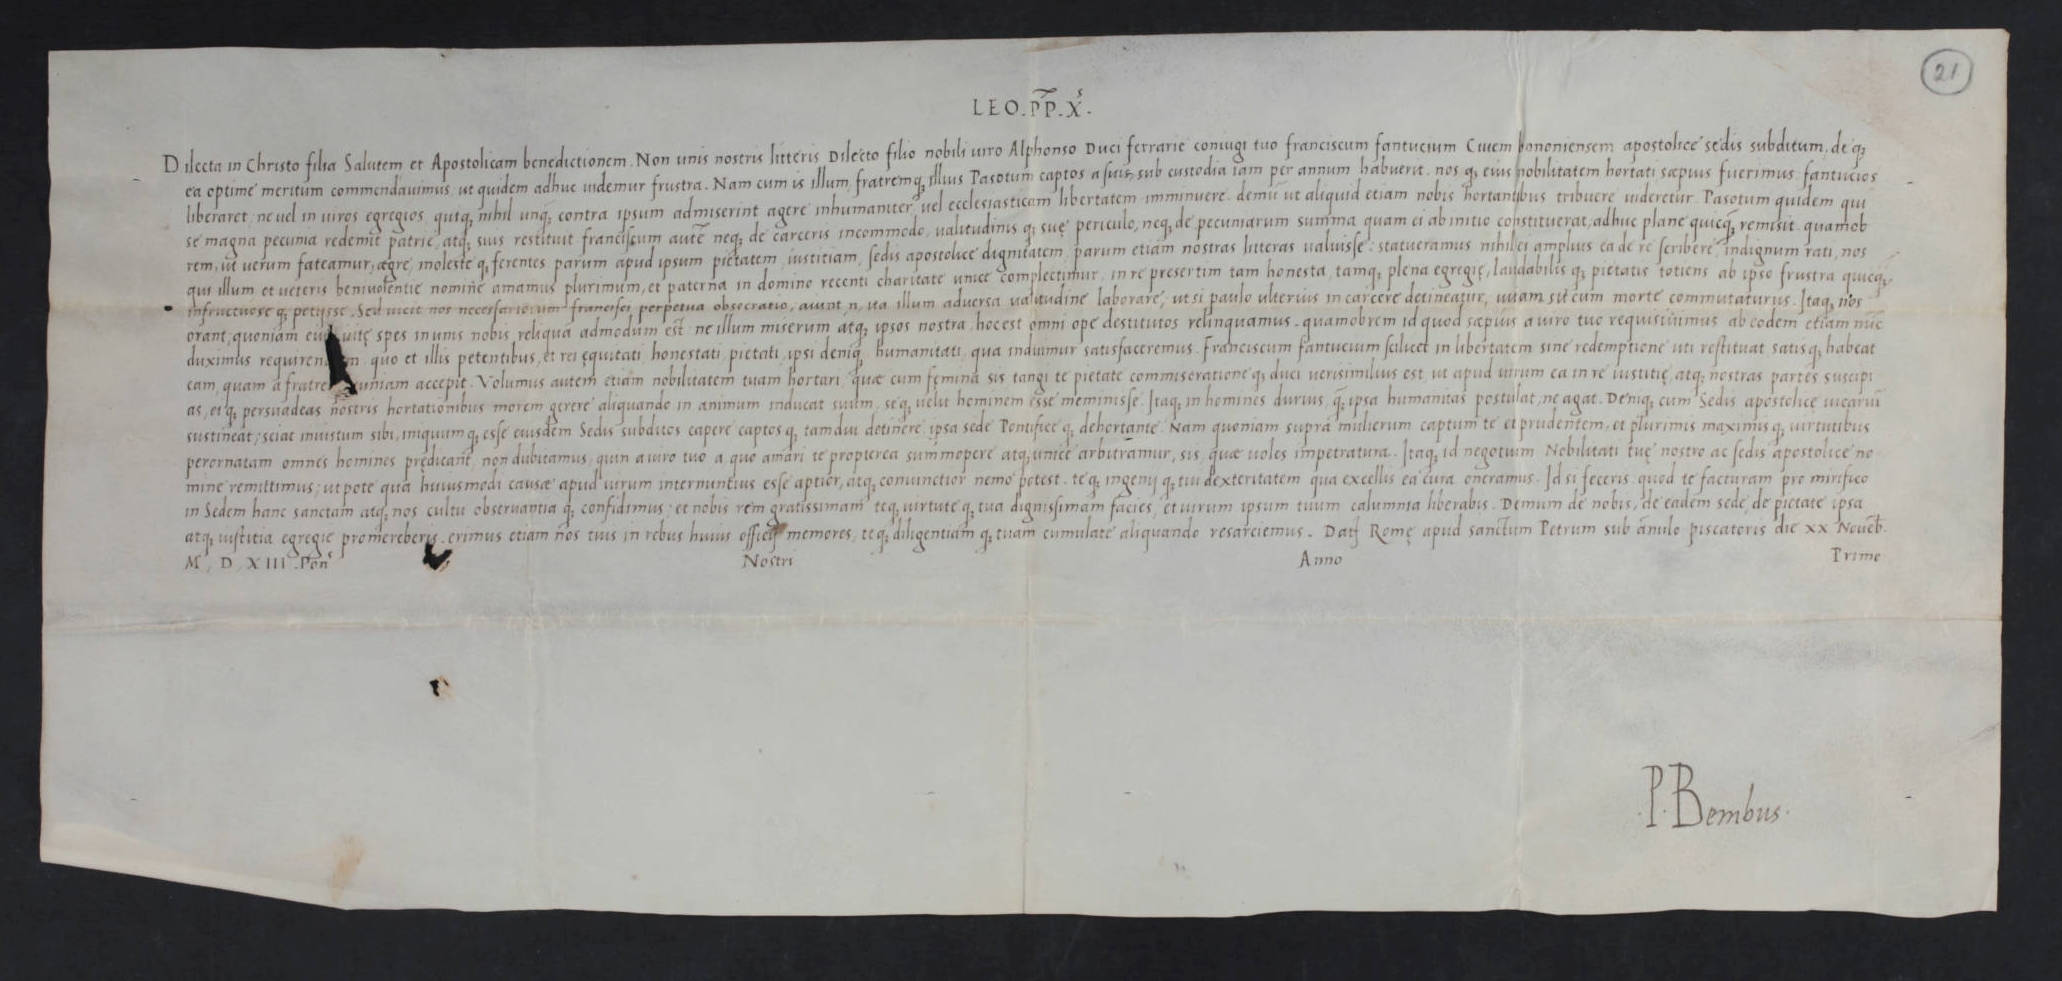 21
LEO. PP. X.
Dilecta in Christo filia Salutem et Apostolicam benedictionem. Non unis nostris litteris Dilecto filio nobili uiro Alphonso Duci ferrarie coniugi tuo franciscum fantucium Ciuem bononiensem apostolice sedis subditum, de q3
ea optime meritum commendauimus, ut quidem adhuc uidemur frustra. Nam cum is illum, fratremq3 illius Pasotum captos a suis, sub custodia iam per annum habuerit. nos q3 eius nobilitatem hortati sæpius fuerimus fantucios
liberaret, ne uel in uiros egregios, quiq3 nihil unq3 contra ipsum admiserint agere inhumaniter, uel ecclesiasticam libertatem imminuere. demū ut aliquid etiam nobis hortantibus tribuere uideretur. Pasotum quidem qui
se magna pecunia redemit patrie, atq3 suis restituit franciscum autē neq3 de carceris incommodo, ualitudinis q3 suę periculo, neq3 de pecuniarum summa quam ei ab initio constituerat, adhuc plane quicq3 remisit. quamob
rem, ut uerum fateamur, ægre, moleste q3 ferentes parum apud ipsum pietatem, iustitiam, sedis apostolice dignitatem, parum etiam nostras litteras ualuisse: statueramus nihil ei amplius ea de re scribere, indignum rati, nos
qui illum et ueteris beniuolentie nomine amamus plurimum, et paterna in domino recenti charitate unice complectimur, in re presertim tam honesta, tamq3 plena egregię, laudabilis q3 pietatis totiens ab ipso frustra quicq3
infructuose q3 petijsse. Sed uicit nos necessariorum francisci perpetua obsecratio, aiunt .n. ita illum aduersa ualitudine laborare, ut si paulo ulterius in carcere detineatur, uitam sit cum morte commutaturus. Itaq3 nos
orant, quoniam uitę spes in unis nobis reliqua admodum est: ne illum miserum atq3 ipsos nostra, hoc est omni ope destitutos relinquamus. quamobrem id quod sæpius a uiro tuo requisiuimus ab eodem etiam nūc
duximus requirendum, quo et illis petentibus, et rei ęquitati honestati, pietati, ipsi deniq3 humanitati, qua induimur satisfaceremus. Franciscum fantucium scilicet in libertatem sine redemptione uti restituat satisq3 habeat
eam, quam a fratre pecuniam accepit. Volumus autem etiam nobilitatem tuam hortari, quæ cum femina sis tangi te pietate commiseratione q3 duci uerisimilius est, ut apud uirum ea in re iustitię, atq3 nostras partes suscipi
as, ei q3 persuadeas nostris hortationibus morem gerere aliquando in animum inducat suum, se q3 uelit hominem esse meminisse. Itaq3 in homines durius, q̄3 ipsa humanitas postulat, ne agat. Deniq3 cum Sedis apostolicę uicariū
sustineat, sciat inuisum sibi, iniquum q3 esse eiusdem Sedis subditos capere captos q3 tamdiu detinere ipsa sede Pontifice q3 dehortante. Nam quoniam supra mulierum captum te et prudentem, et plurimis maximis q3 uirtutibus
perornatam omnes homines prędicant, non dubitamus, quin a uiro tuo a quo amari te propterea summopere atq3 unice arbitramur, sis quæ uoles impetratura. Itaq3 id negotium Nobilitati tuę nostro ac sedis apostolice no
mine remittimus; utpote qua huiusmodi causæ apud uirum internuntius esse aptior, atq3 conuinctior nemo potest. te q3 ingenij q3 tui dexteritatem qua excellis ea cura oneramus. Id si feceris: quod te facturam pro mirifico
in Sedem hanc sanctam atq3 nos cultu obseruantia q3 confidimus; et nobis rem gratissimam teq3 uirtute q3 tua dignissimam facies, et uirum ipsum tuum calumnia liberabis. Demum de nobis, de eadem sede, de pietate ipsa
atq3 iustitia egregie promereberis. erimus etiam nos tuis in rebus huius officij memores, te q3 diligentiam q3 tuam cumulate aliquando resarciemus. Datʒ Romę apud sanctum Petrum sub ānulo piscatoris die xx Nouēb.
M. D. XIII. Pōn Nostri Anno Primo
.P. Bembus.